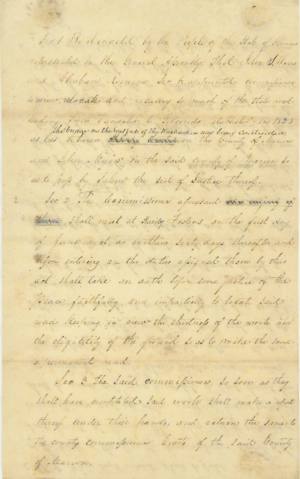 Sec 1 Be it enacted by the People of the State of Illinois
represented in the General Assembly That John S.
and be & are appointed commissioners
to view, relocate and resurvey so much of the state road
leading from Vandalia to
as lies between in the County of Marion
and in the said County of Marion so
as to pass by Salem the seat of Justice thereof.
Sec 2 The Commissioners aforesaid
shall meet at Hardy Fosters on the first day
of June next, or within sixty days thereafter and
before entering on the duties assigned them by this
act shall take an oath before some justice of the
Peace faithfully and impartially to locate said
road keeping in view the shortness of the route and
the eligibility of the ground so as to make the same
a permanent road.
Sec 3 The said commissioners so soon as they
shall have completed said work shall make a report
thereof under their hands and return the same to
the county commissioners Court of the said County
of Marion.